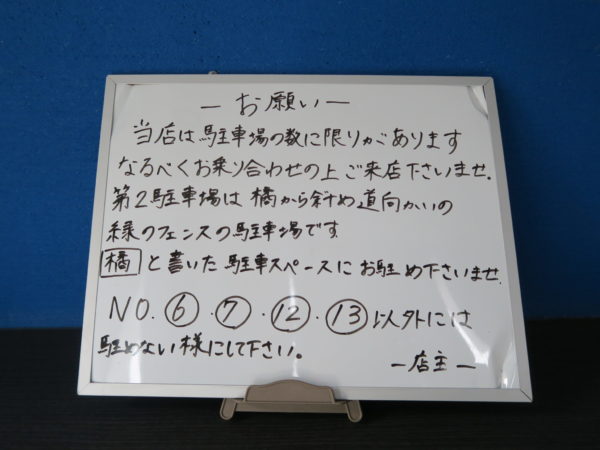 ーお願いー
当店は駐車場の数に限りがあります
なるべくお乗り合わせの上ご来店下さいませ.
第2駐車場は橘から斜め道向かいの
緑のフェンスの駐車場です
橘と書いた駐車スペースにお駐め下さいませ
NO.⑥・⑦・⑫・⑬以外には
駐めない様にして下さい。
ー店主ー